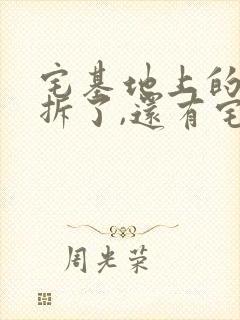 宅基地上的
拆了,還有宅
周光荣